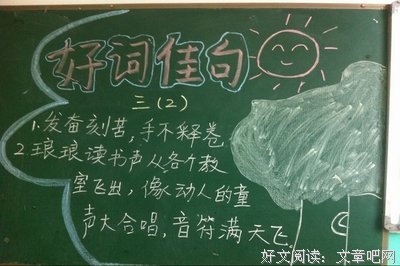 好词佳句
三(2)
1.发奋刻苦,手不释卷
2.琅琅读书声从各个教
室飞出,像动人的童
声大合唱,音符满天飞。
好文阅读:文章吧网